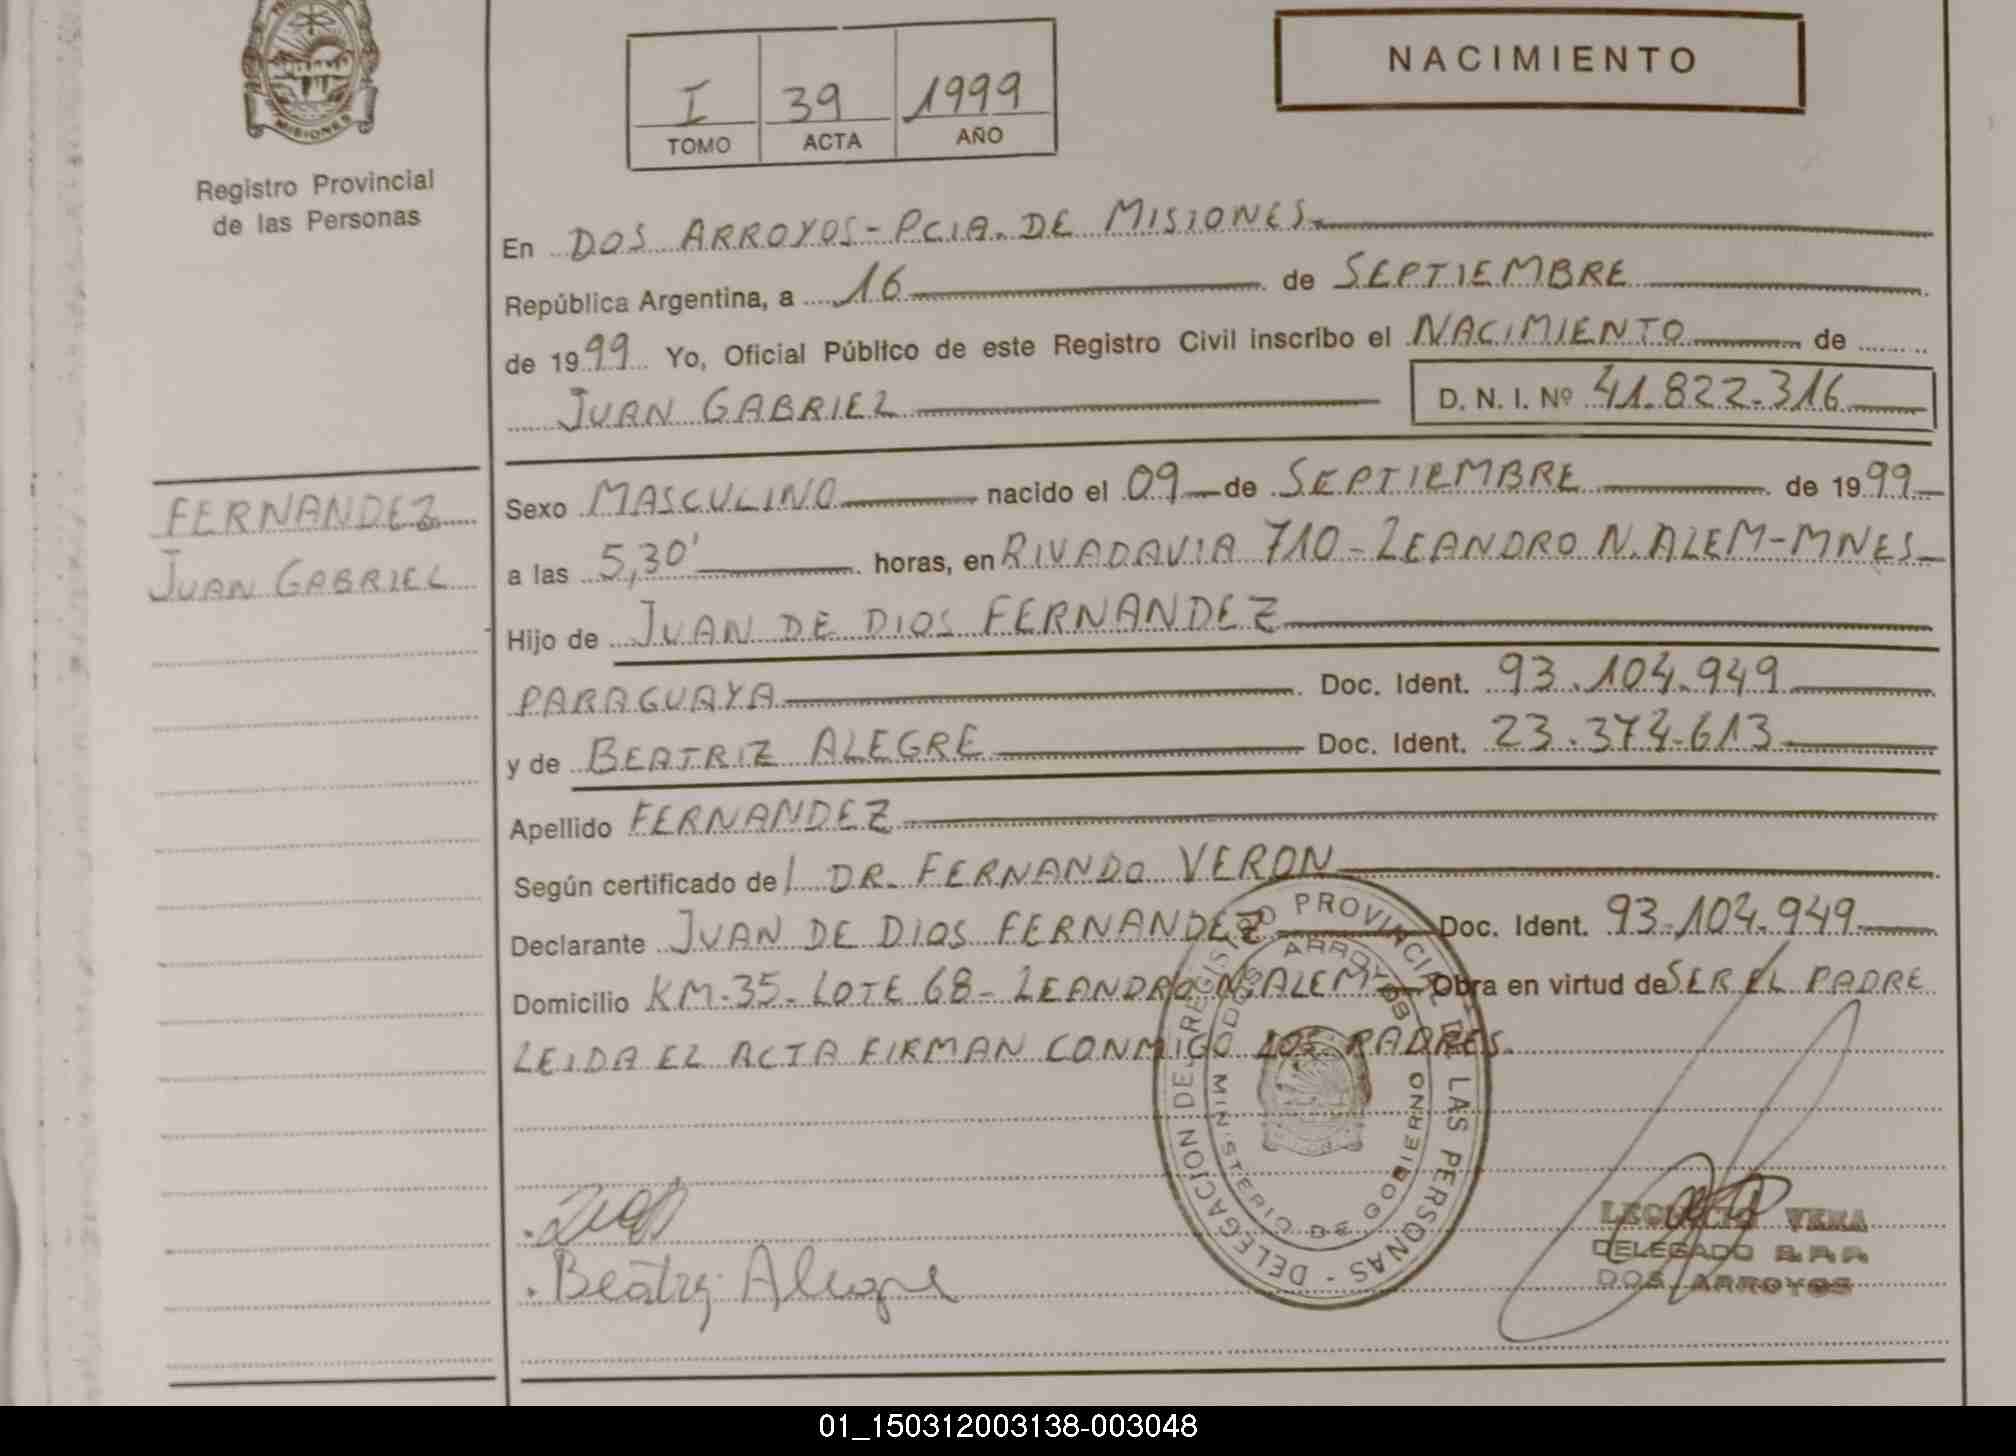 MISIONES
Registro Provincial
de las Personas
I 39 1999
TOMO ACTA AÑO
NACIMIENTO
En DOS ARROYOS - PCIA. DE MISIONES.
República Argentina, a 16 de SEPTIEMBRE
de 1999 Yo, Oficial Público de este Registro Civil inscribo el NACIMIENTO de
JUAN GABRIEL D. N. I. Nº 41.822.316
FERNANDEZ
JUAN GABRIEL
Sexo MASCULINO nacido el 09 de SEPTIEMBRE de 1999
a las 5,30' horas, en RIVADAVIA 710 - LEANDRO N. ALEM - MNES
Hijo de JUAN DE DIOS FERNANDEZ
PARAGUAYA Doc. Ident. 93.104.949
y de BEATRIZ ALEGRE Doc. Ident. 23.374.613
Apellido FERNANDEZ
Según certificado de DR. FERNANDO VERON
Declarante JUAN DE DIOS FERNANDEZ Doc. Ident. 93.104.949
Domicilio KM-35- LOTE 68- LEANDRO N. ALEM Obra en virtud de SER EL PADRE
LEIDA EL ACTA FIRMAN CONMIGO LOS PADRES.
DELEGACION DEL REGISTRO PROVINCIAL DE LAS PERSONAS -
DOS ARROYOS
MINISTERIO DE GOBIERNO
Beatriz Alegre
VERA
DELEGADO R. P. P.
DOS ARROYOS
01_150312003138-003048